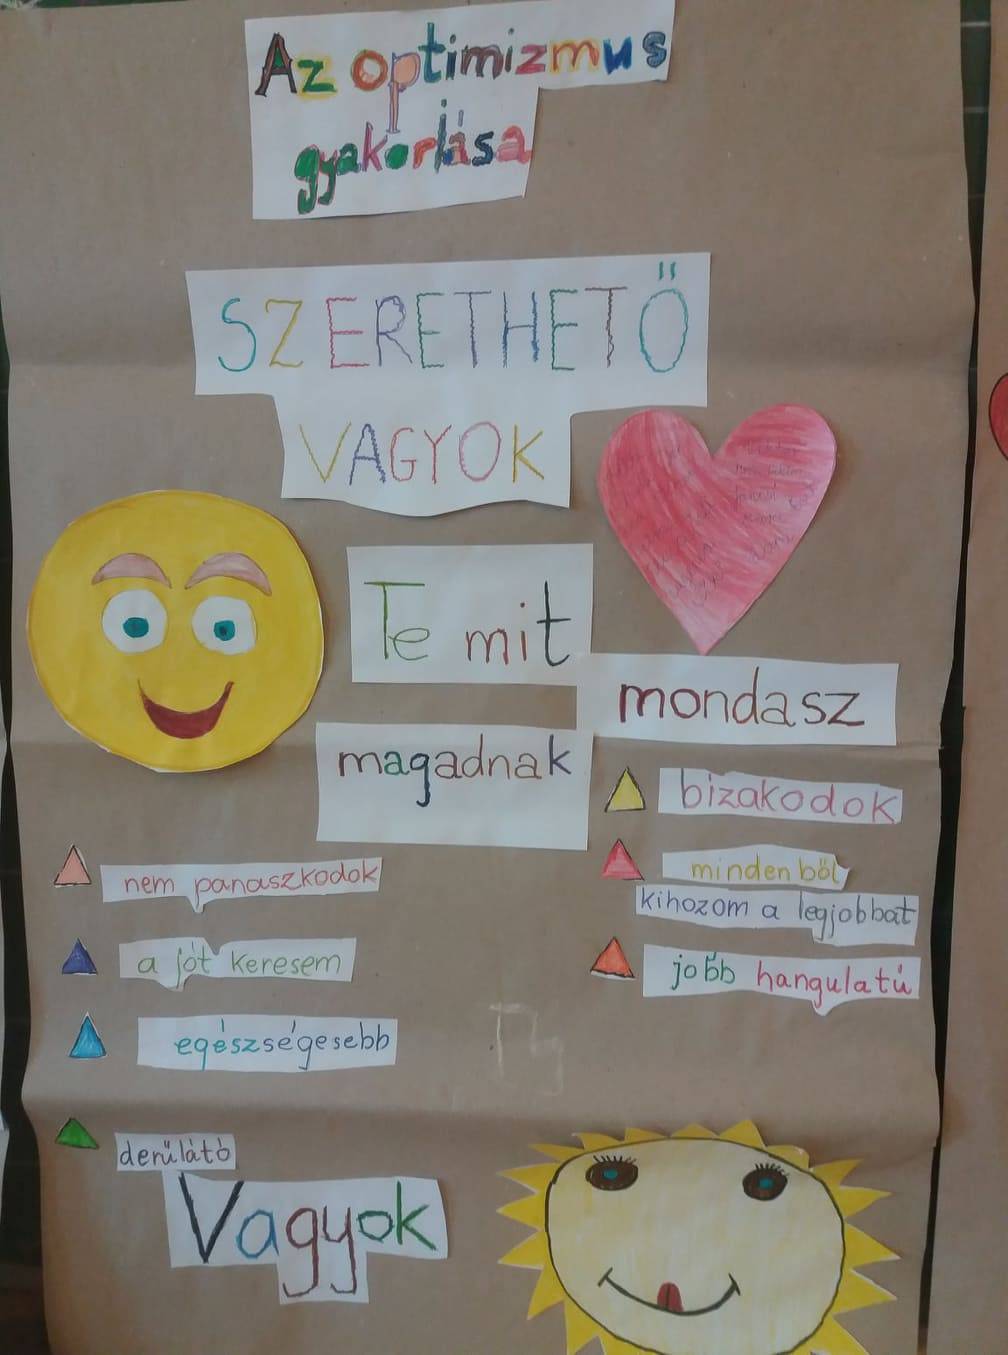 Az optimizmus
gyakorlása
SZERETHETŐ
VAGYOK
Te mit
mondasz
magadnak
nem panaszkodok
a jót keresem
egészségesebb
derűlátó
Vagyok
bizakodok
mindenből
kihozom a legjobbat
jobb hangulatú